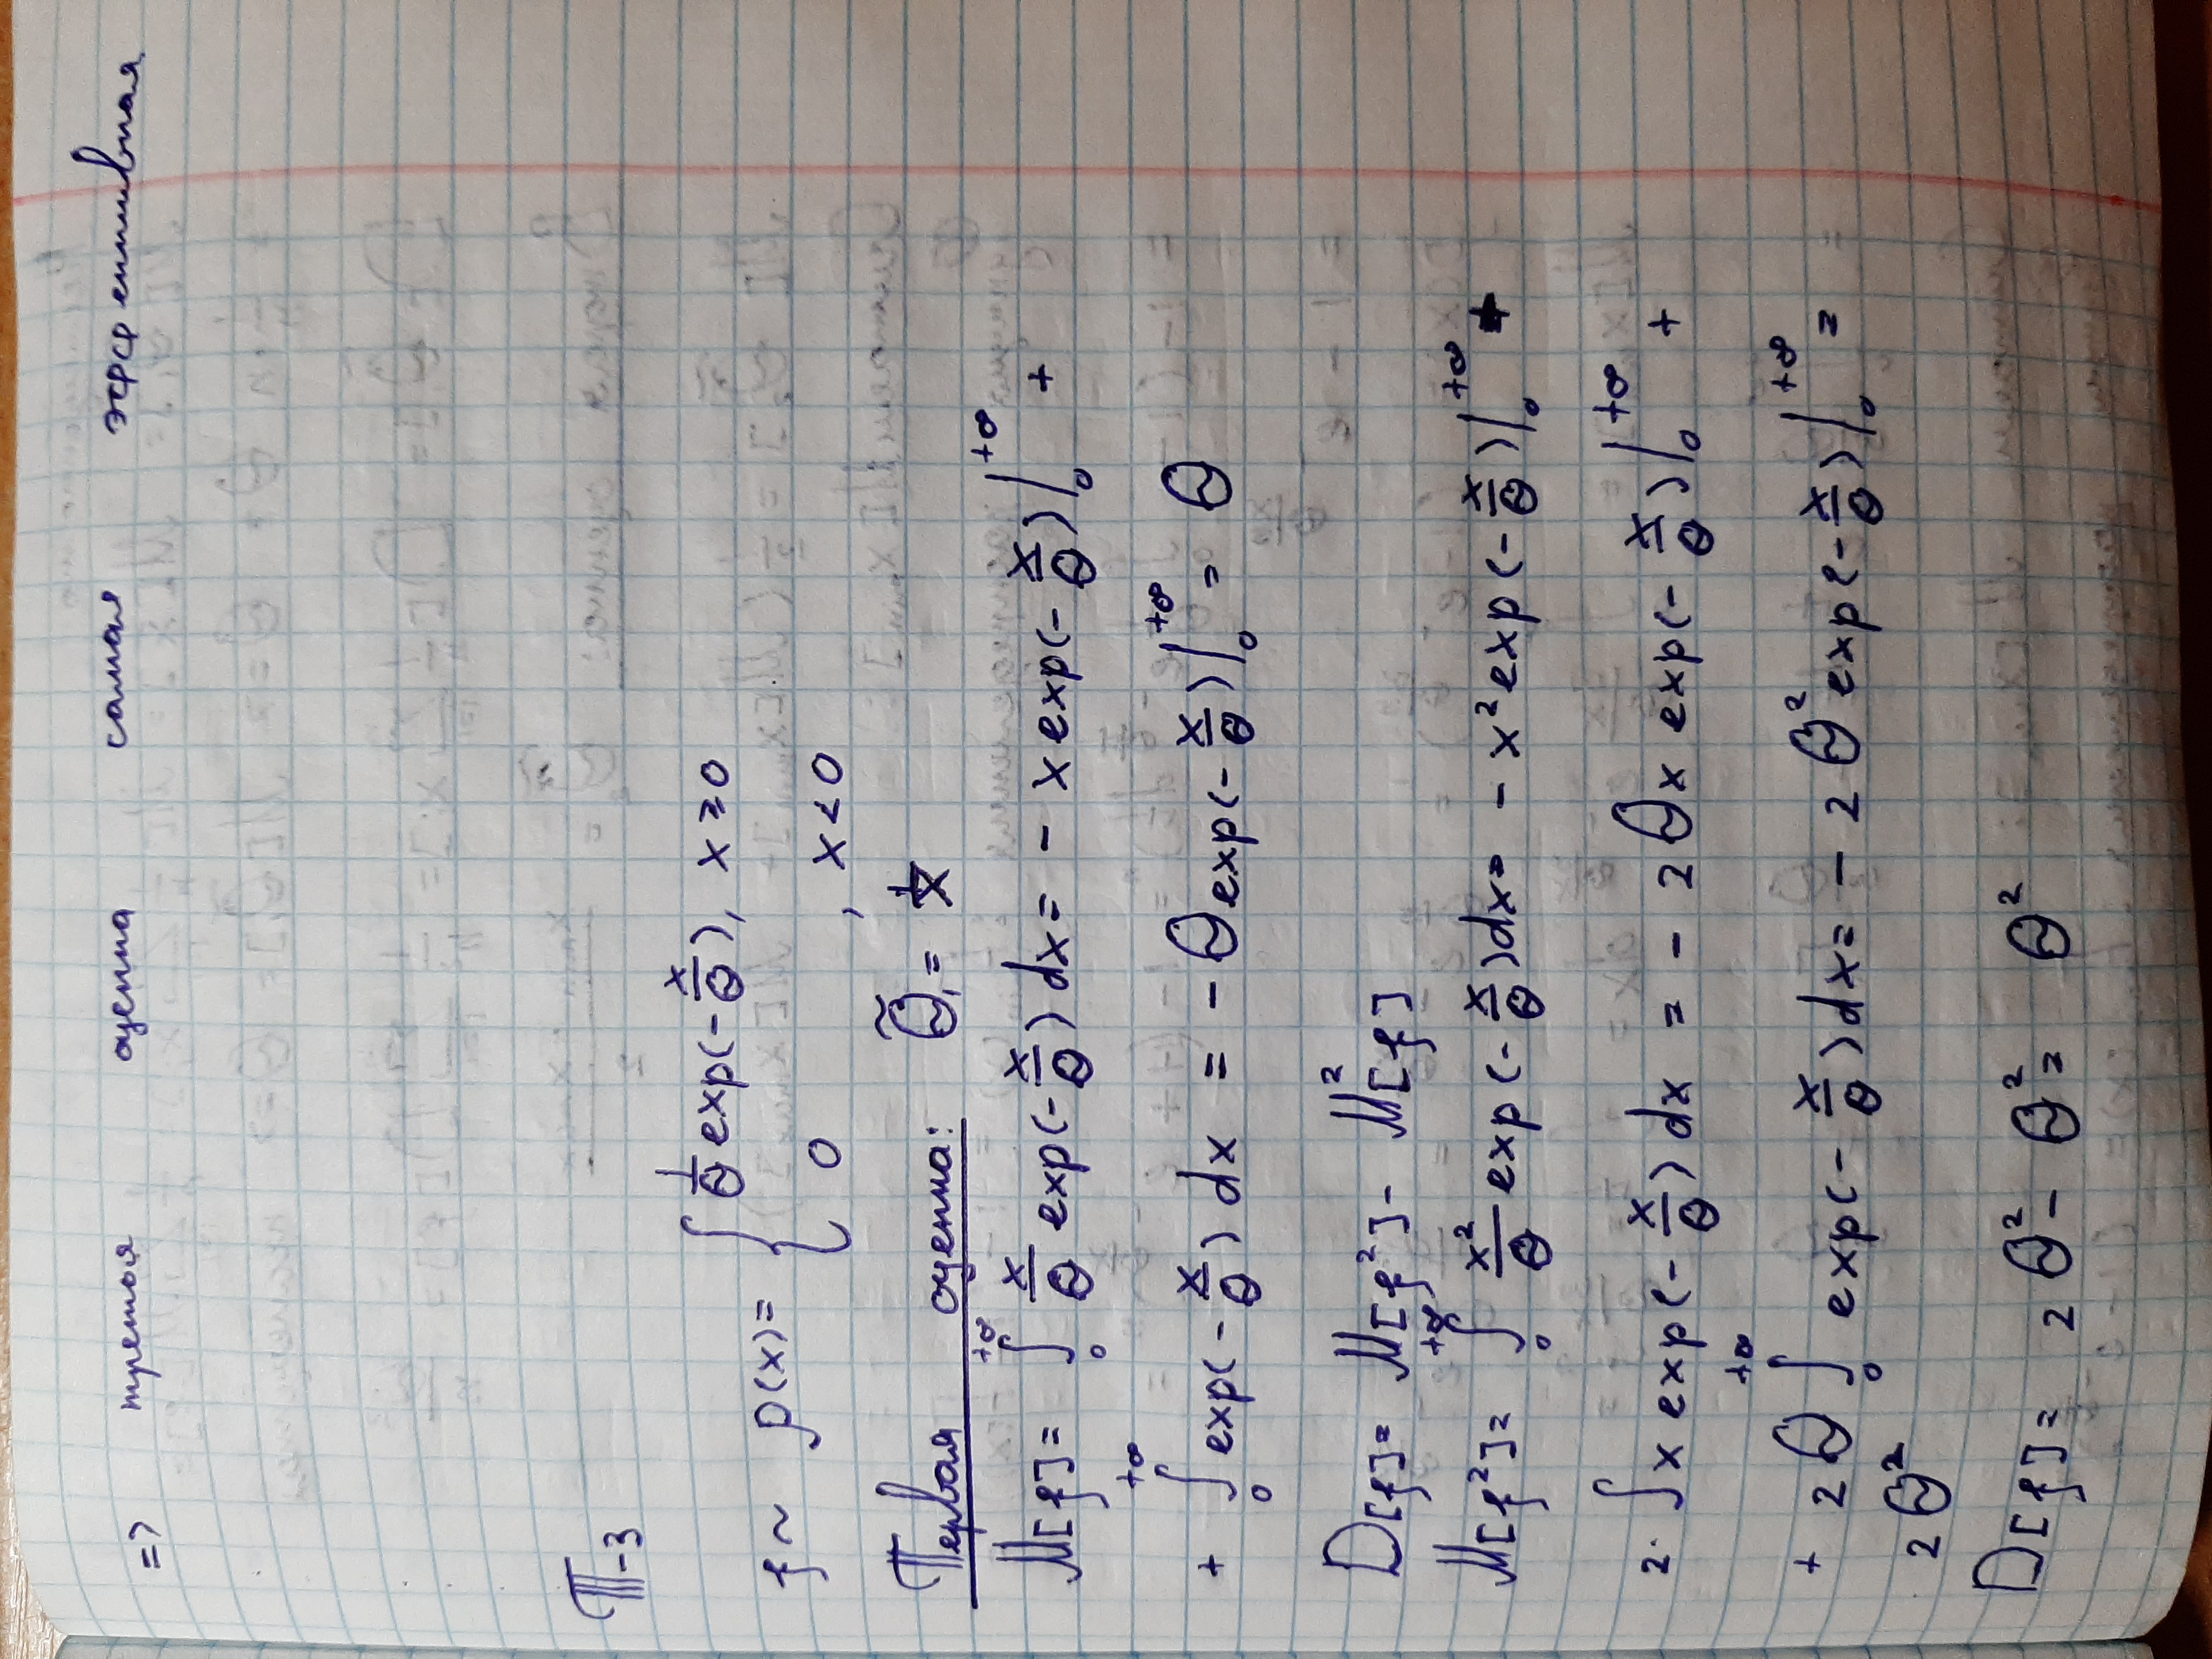 => третья оценка самая эффективная
Т-3
ξ ~ p(x) = { 1/θ exp(-x/θ), x ≥ 0
0 , x < 0
Первая оценка: θ̃₁ = x̄
M[ξ] = ∫₀^{+∞} x/θ exp(-x/θ) dx = - x exp(-x/θ)|₀^{+∞} +
+ ∫₀^{+∞} exp(-x/θ) dx = - θ exp(-x/θ)|₀^{+∞} = θ
D[ξ] = M[ξ²] - M²[ξ]
M[ξ²] = ∫₀^{+∞} x²/θ exp(-x/θ) dx = - x² exp(-x/θ)|₀^{+∞} +
2· ∫ x exp(-x/θ) dx = - 2θx exp(-x/θ)|₀^{+∞} +
+ 2θ ∫₀^{+∞} exp(-x/θ) dx = - 2θ² exp(-x/θ)|₀^{+∞} =
2θ²
D[ξ] = 2θ² - θ² = θ²